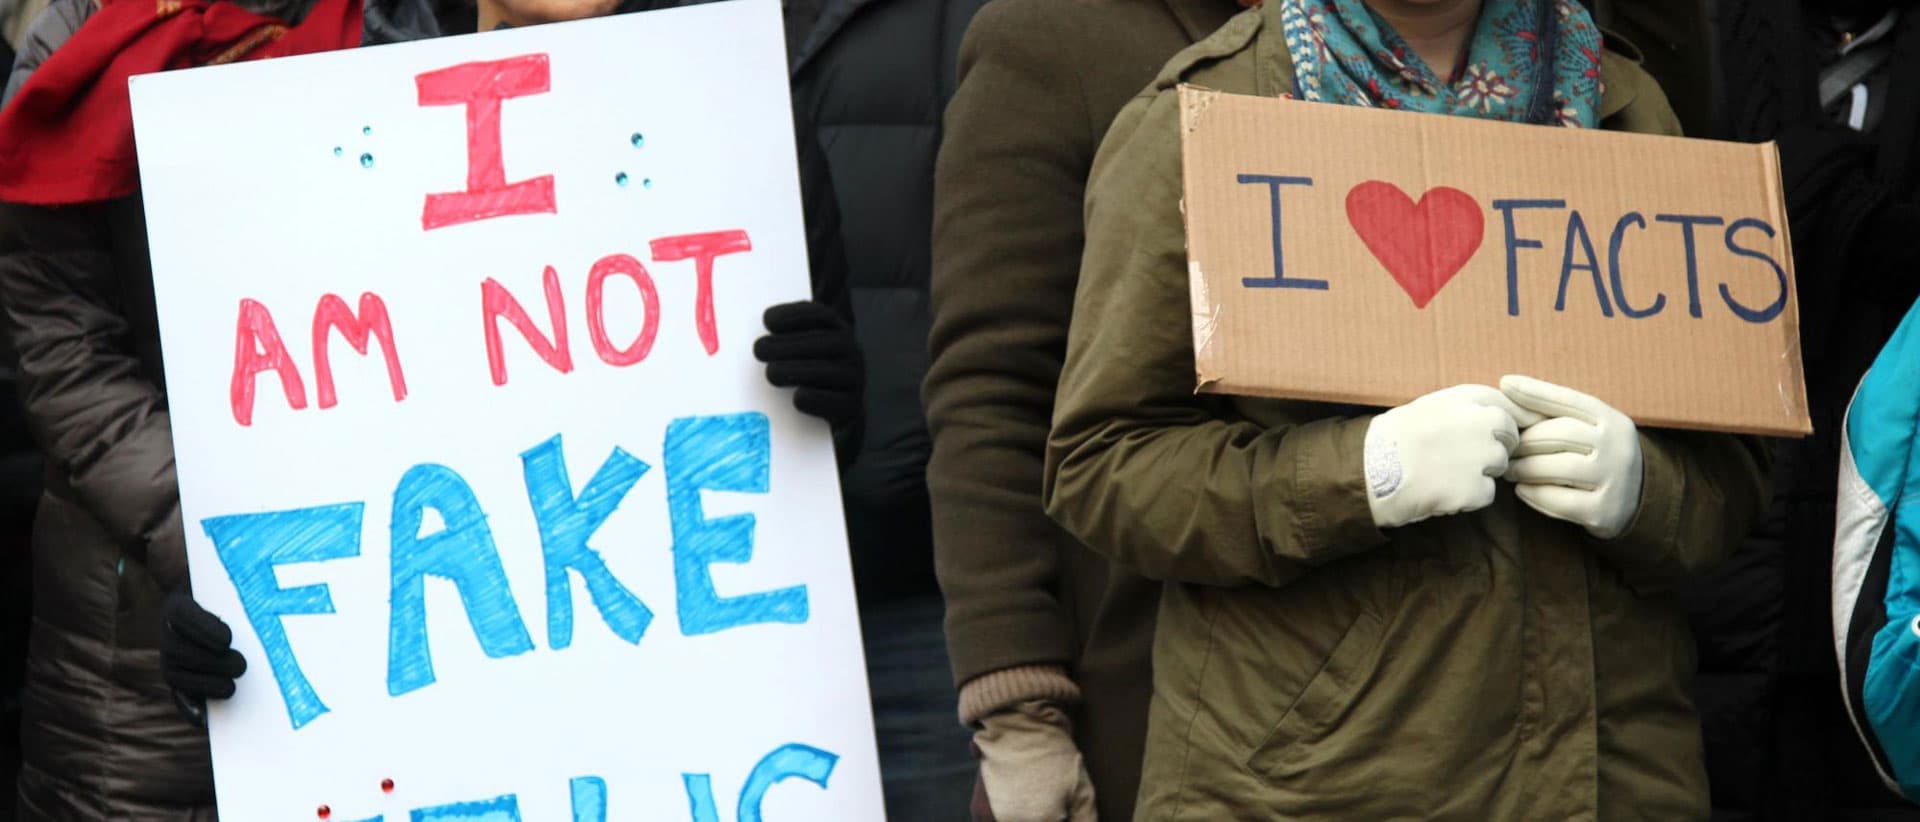 I
AM NOT
FAKE
I ❤ FACTS